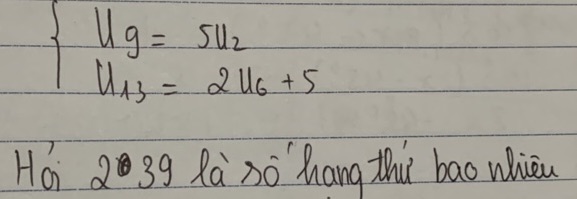 { U9 = 5U2
U13 = 2U6 + 5
Hỏi 2039 là số hạng thứ bao nhiêu